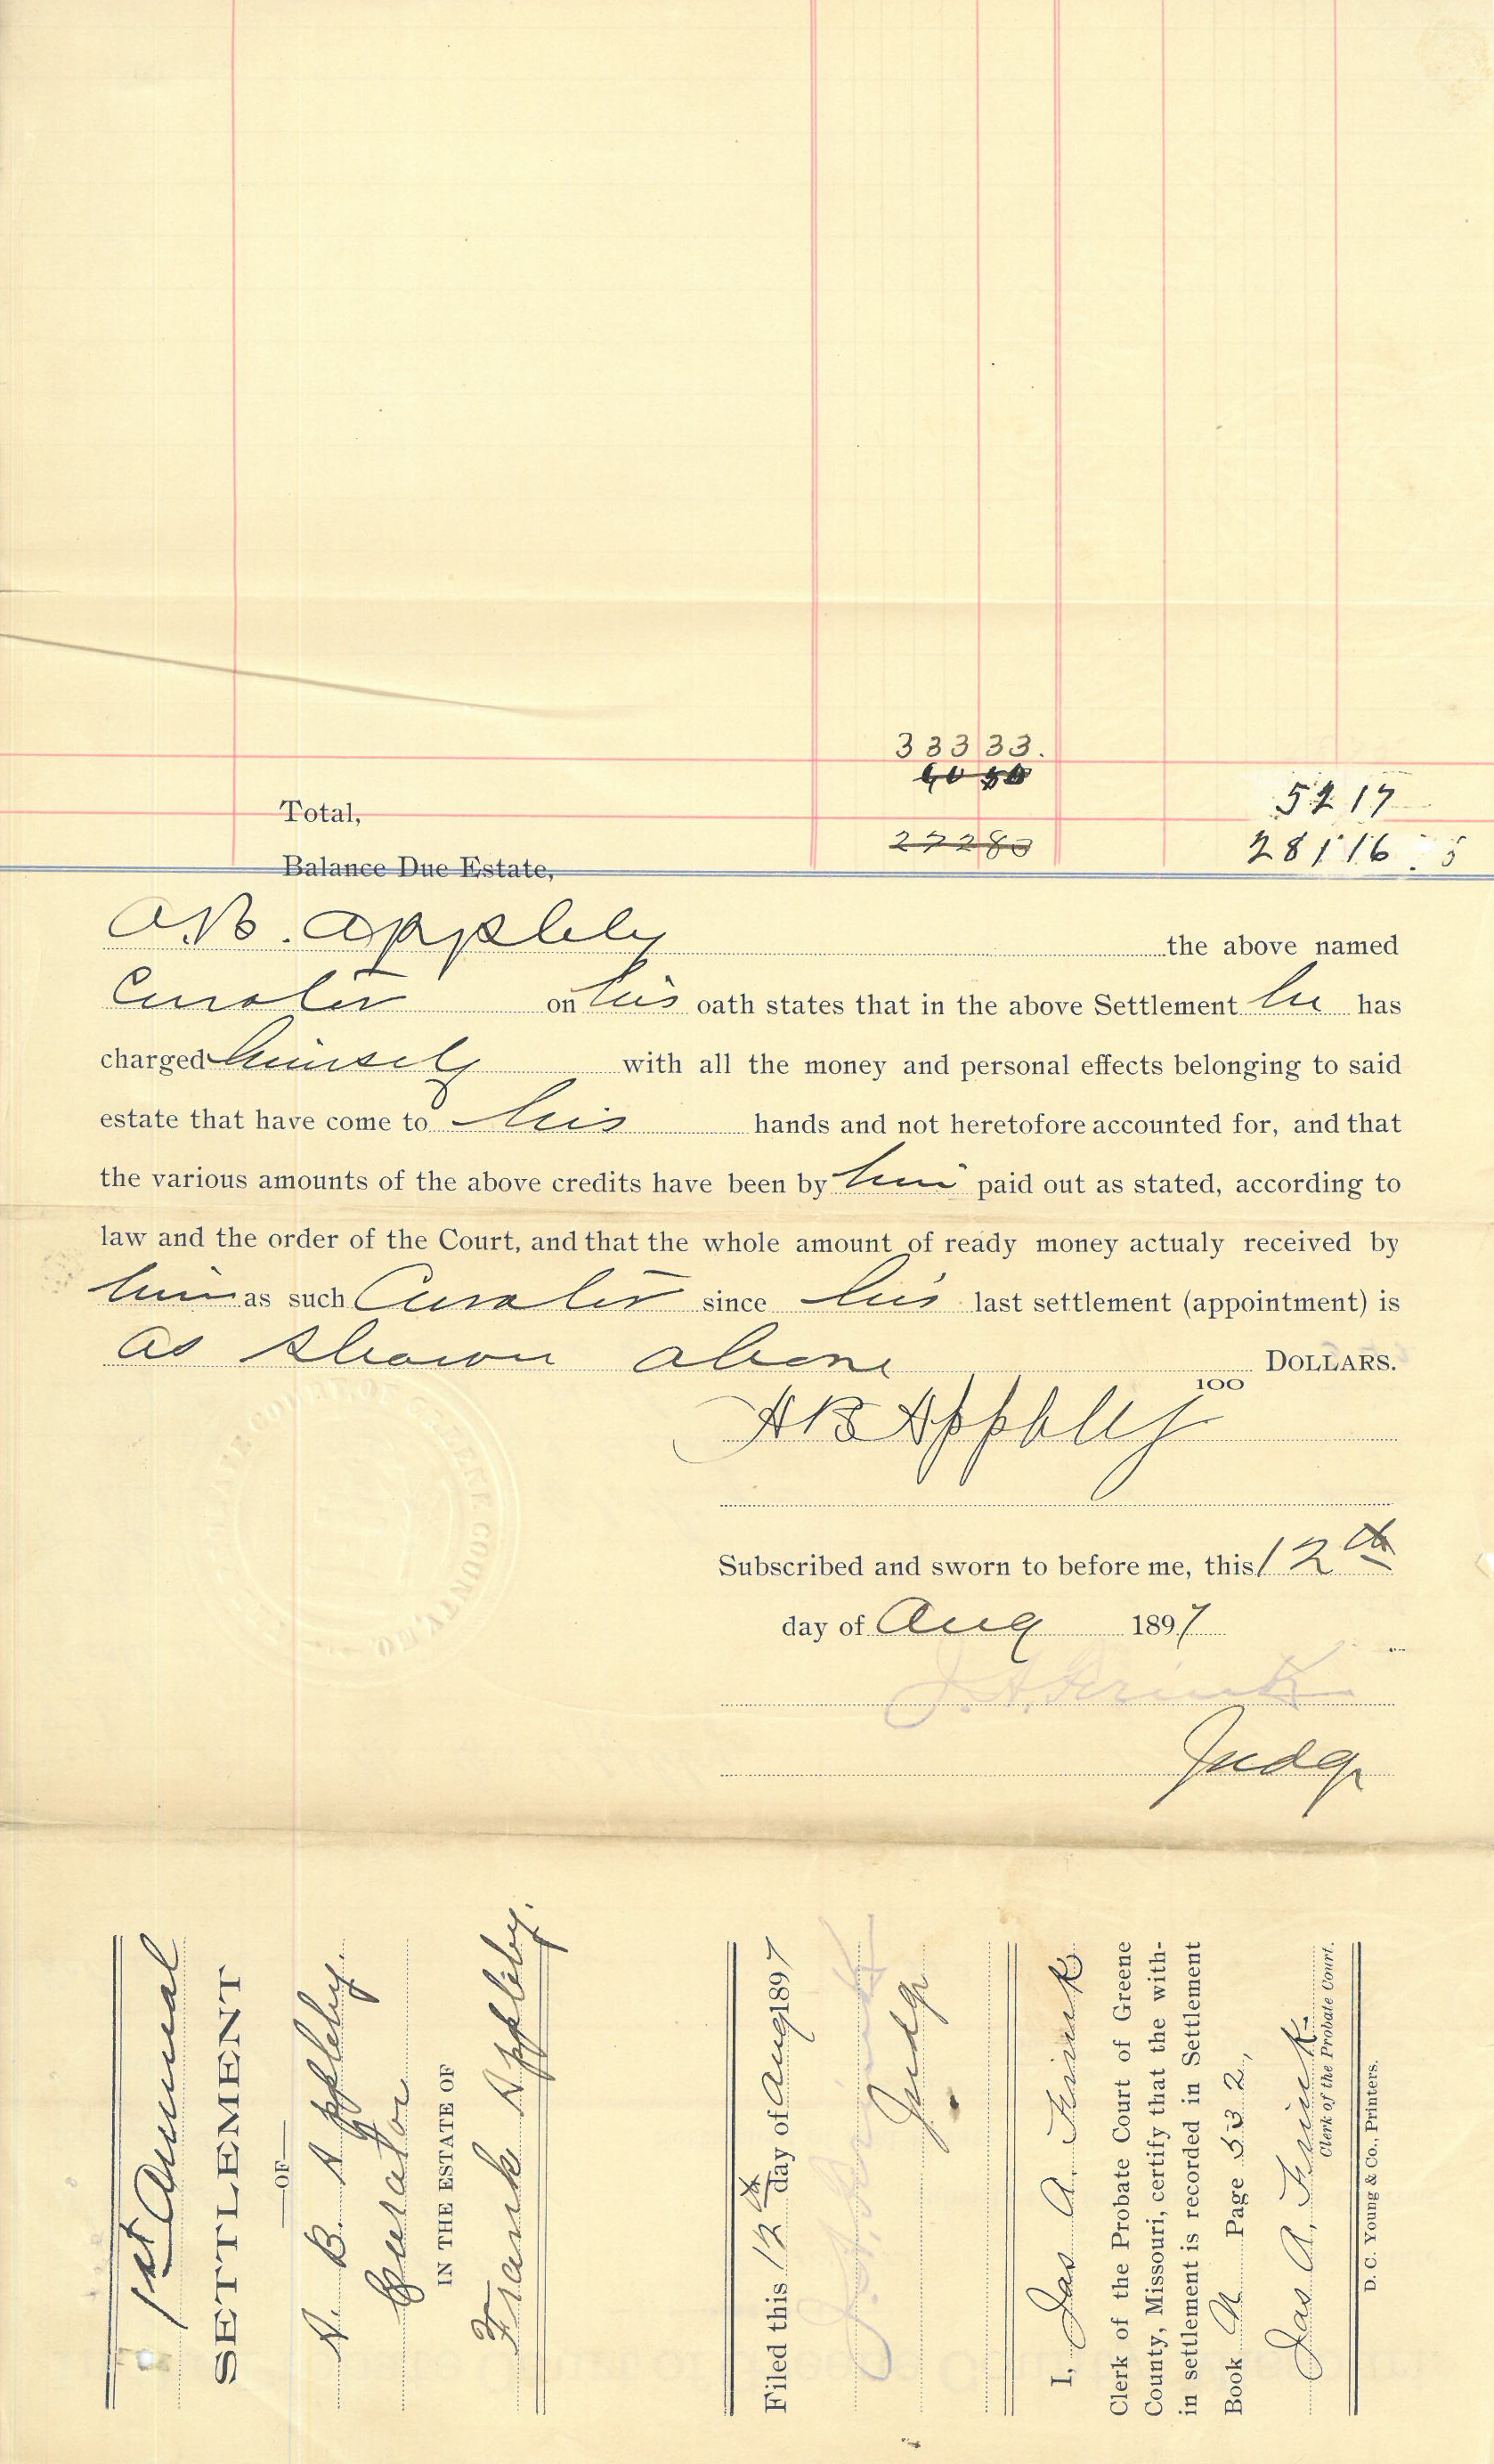 333 33.
60 50
Total, 52 17
272 83
281 16
Balance Due Estate,
A.B. Appleby the above named
Curator on his oath states that in the above Settlement he has
charged himself with all the money and personal effects belonging to said
estate that have come to his hands and not heretofore accounted for, and that
the various amounts of the above credits have been by him paid out as stated, according to
law and the order of the Court, and that the whole amount of ready money actualy received by
him as such Curator since his last settlement (appointment) is
as shown above DOLLARS.
100
A B Appleby
Subscribed and sworn to before me, this 12th
day of Aug 1897
J. A. Frink
Judge
COURT OF GREENE COUNTY, MO.
1st Annual
SETTLEMENT
—OF—
A. B. Appleby.
Curator
IN THE ESTATE OF
Frank Appleby.
Filed this 12th day of Aug 1897
J. A. Frink
Judge
I, Jas A. Frink
Clerk of the Probate Court of Greene
County, Missouri, certify that the with-
in settlement is recorded in Settlement
Book N Page 532,
Jas A. Frink.
Clerk of the Probate Court.
D. C. Young & Co., Printers.